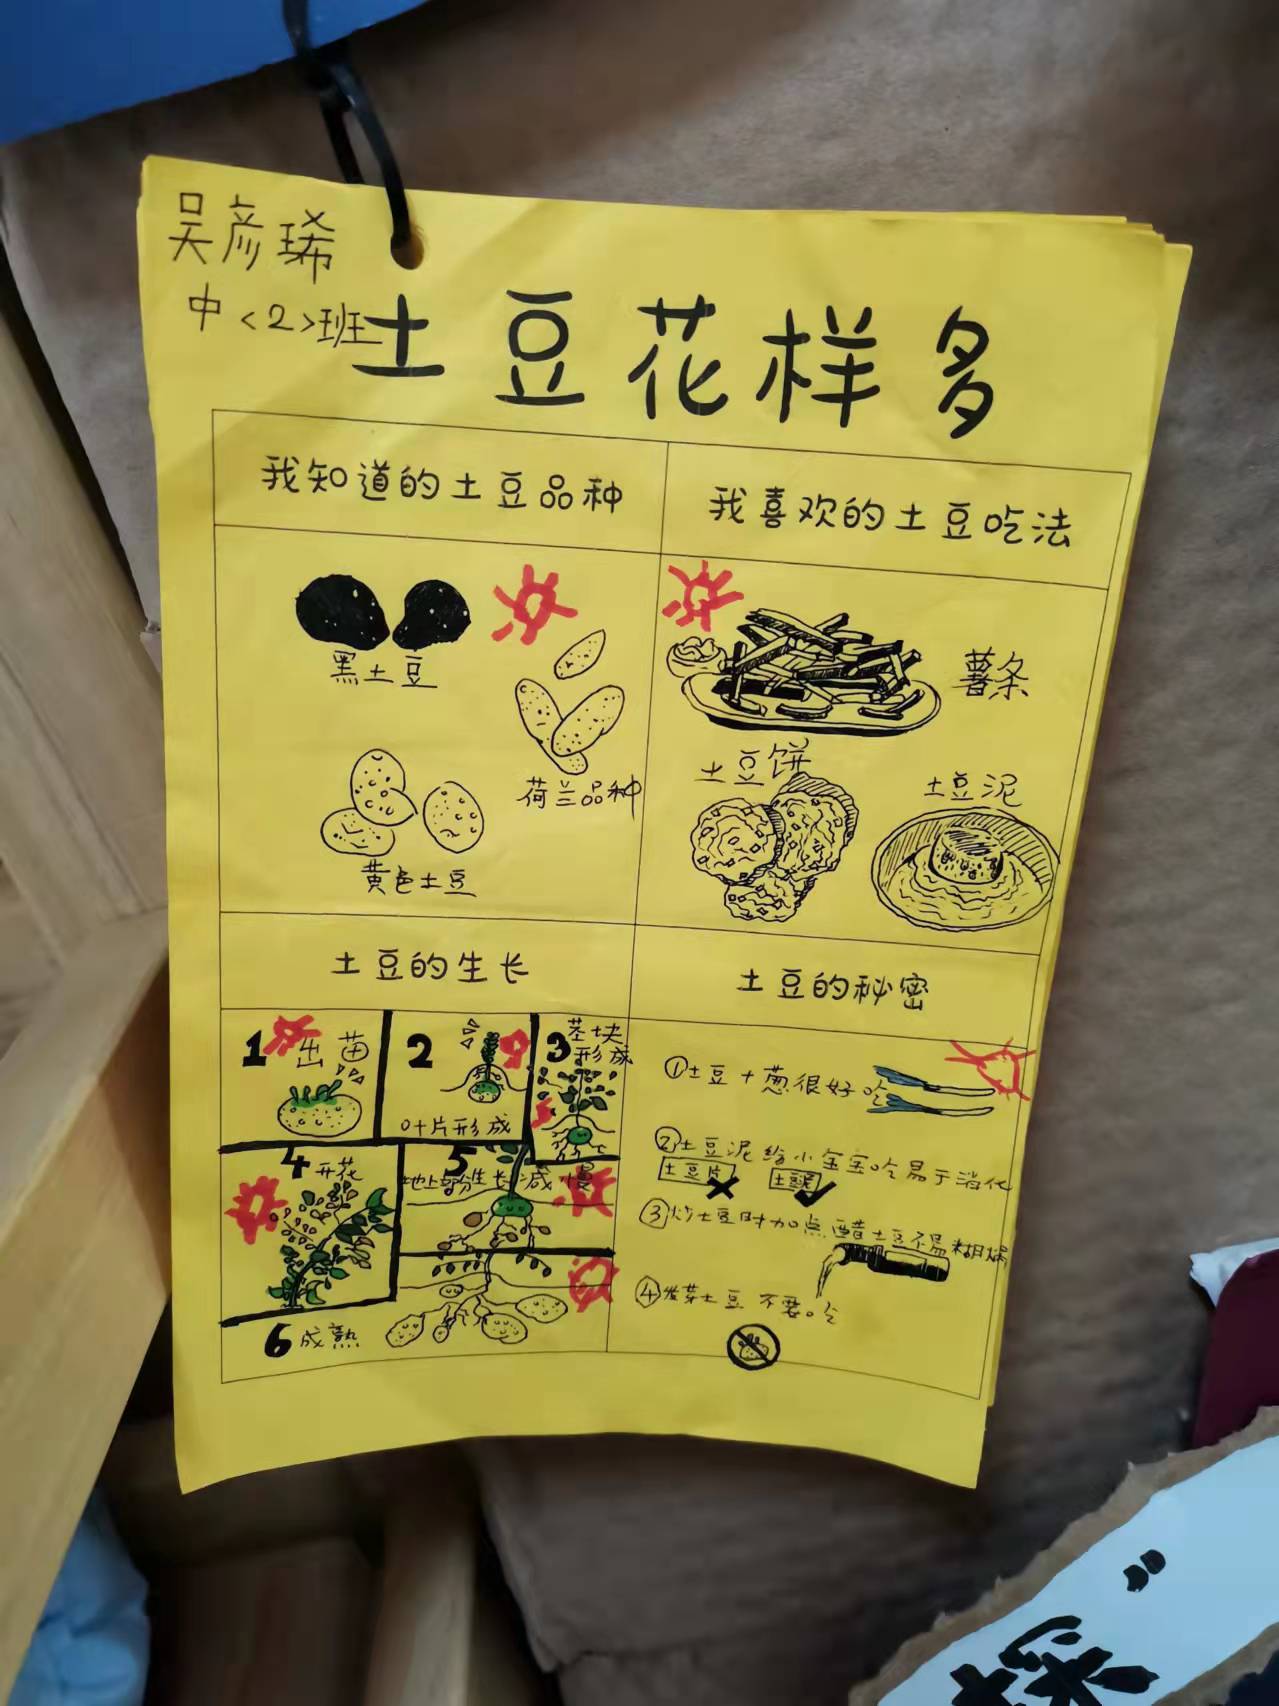 吴彦琋
中<2>班
土豆花样多
我知道的土豆品种
我喜欢的土豆吃法
黑土豆
荷兰品种
黄色土豆
薯条
土豆饼
土豆泥
土豆的生长
土豆的秘密
1 出苗
2
叶片形成
3 茎块
形成
4 开花
5
地上部分生长减慢
6 成熟
①土豆+葱很好吃
②土豆泥给小宝宝吃易于消化
土豆片 土豆泥
③炒土豆时加点醋土豆不易糊锅
④发芽土豆不要吃